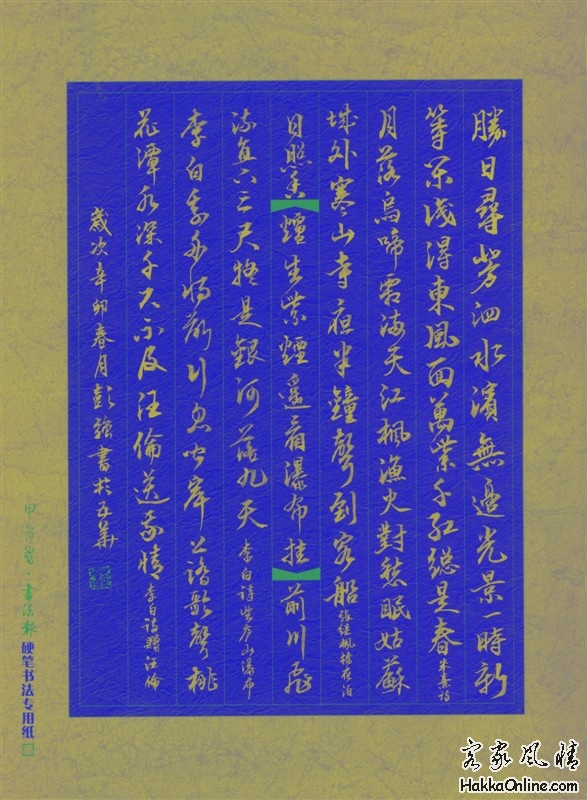 勝日尋芳泗水濱無邊光景一時新
等闲識得東風面萬紫千红總是春 朱熹詩
月落烏啼霜满天江楓漁火對愁眠姑蘇
城外寒山寺夜半鐘聲到客船 張继楓橋夜泊
日照香爐生紫煙遥看瀑布挂前川飛
流直下三千尺疑是銀河落九天 李白詩望庐山瀑布
李白乘舟将欲行忽闻岸上踏歌聲桃
花潭水深千尺不及汪倫送我情 李白詩贈汪倫
歲次辛卯春月彭强書於五華
書法報 硬笔书法专用纸
客家風情
HakkaOnline.com